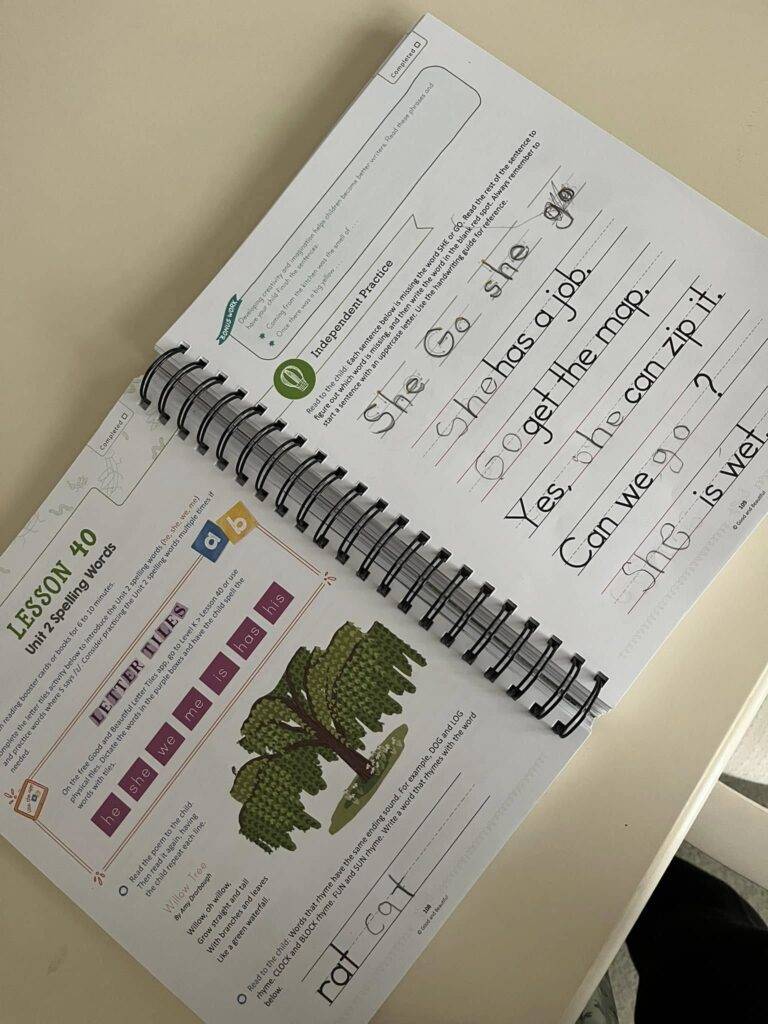 Completed
LESSON 40
Unit 2 Spelling Words
reading booster cards or books for 6 to 10 minutes.
complete the letter tiles activity below to introduce the Unit 2 spelling words (he, she, we, me)
and practice words where S says /z/. Consider practicing the Unit 2 spelling words multiple times if
needed.
a b
LETTER TILES
On the free Good and Beautiful Letter Tiles app, go to Level K > Lesson 40 or use
physical tiles. Dictate the words in the purple boxes and have the child spell the
words with tiles.
he she we me is has his
Read the poem to the child.
Then read it again, having
the child repeat each line.
Willow Tree
By Amy Drorbaugh
Willow, oh willow,
Grow straight and tall
With branches and leaves
Like a green waterfall.
Read to the child: Words that rhyme have the same ending sound. For example, DOG and LOG
rhyme. CLOCK and BLOCK rhyme. FUN and SUN rhyme. Write a word that rhymes with the word
below.
rat cat
108
© Good and Beautiful
Completed
BONUS WORK
Developing creativity and imagination helps children become better writers. Read these phrases and
have your child finish the sentences.
Coming from the kitchen was the smell of . . .
Once there was a big yellow . . .
Independent Practice
Read to the child: Each sentence below is missing the word SHE or GO. Read the rest of the sentence to
figure out which word is missing, and then write the word in the blank red spot. Always remember to
start a sentence with an uppercase letter. Use the handwriting guide for reference.
She Go she go
She has a job.
Go get the map.
Yes, she can zip it.
Can we go ?
She is wet.
109
© Good and Beautiful